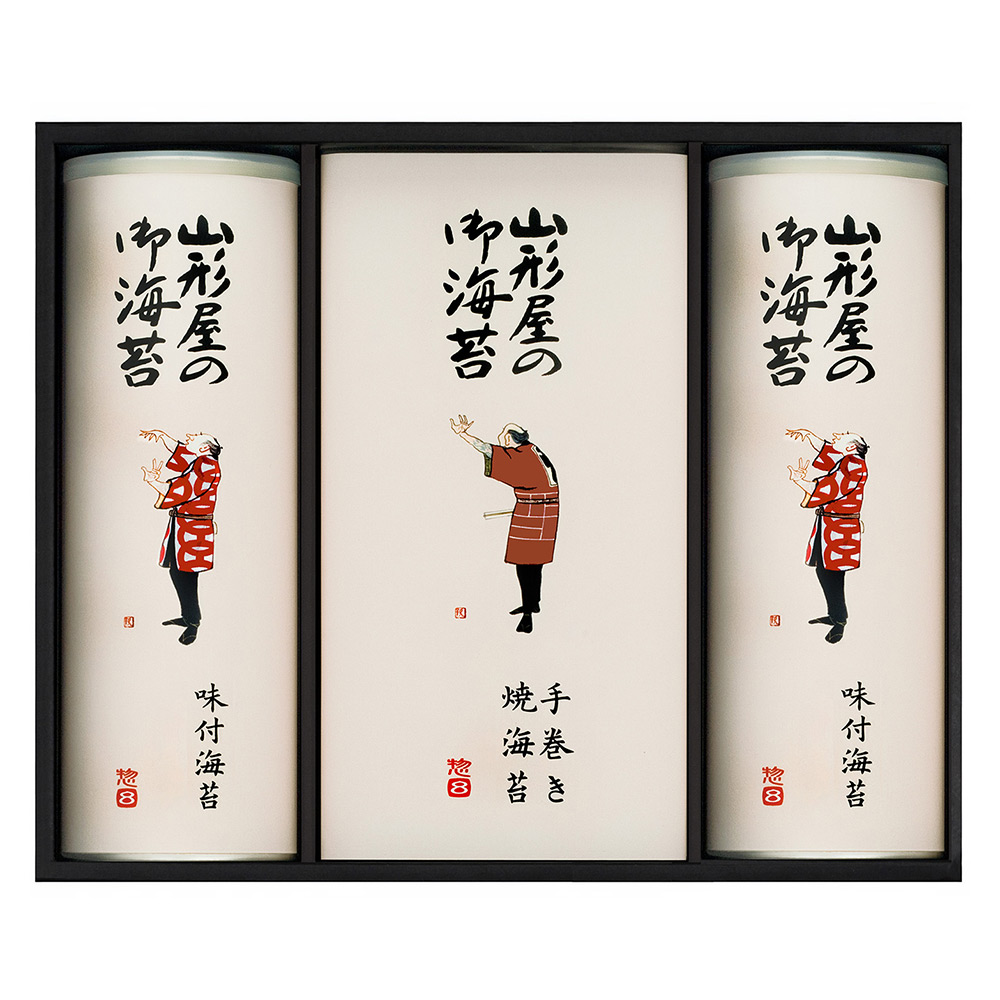 山形屋の
御海苔
味付海苔
惣
山形屋の
御海苔
手巻き
焼海苔
惣
山形屋の
御海苔
味付海苔
惣